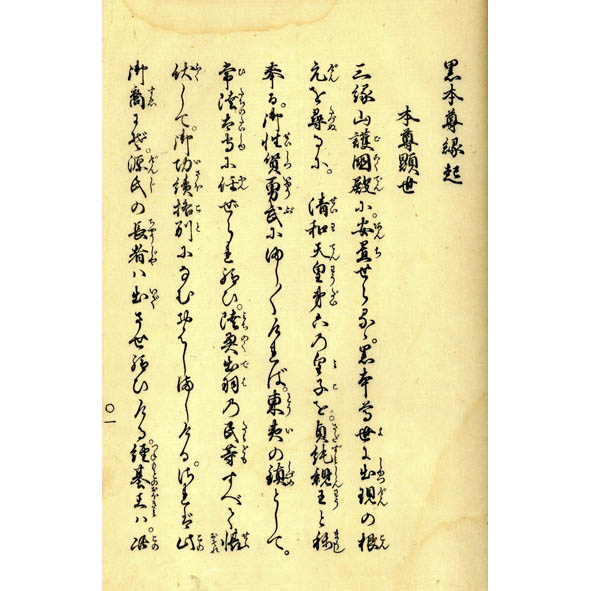 黒本尊縁起
本尊顕世
三縁山護國殿に。安置せらるゝ。黒本尊世に出現の根
元を尋るに。清和天皇第六の皇子を。貞純親王と称
奉る。御性質勇武にましましければ。東夷の鎮として。
常陸太守に任ぜられ給ひ。陸奥出羽の民等すべて懼
伏して。御功績格別になむおはしましける。されば此
御裔にぞ。源氏の長者は出させ給ひける。経基王は。
〇一